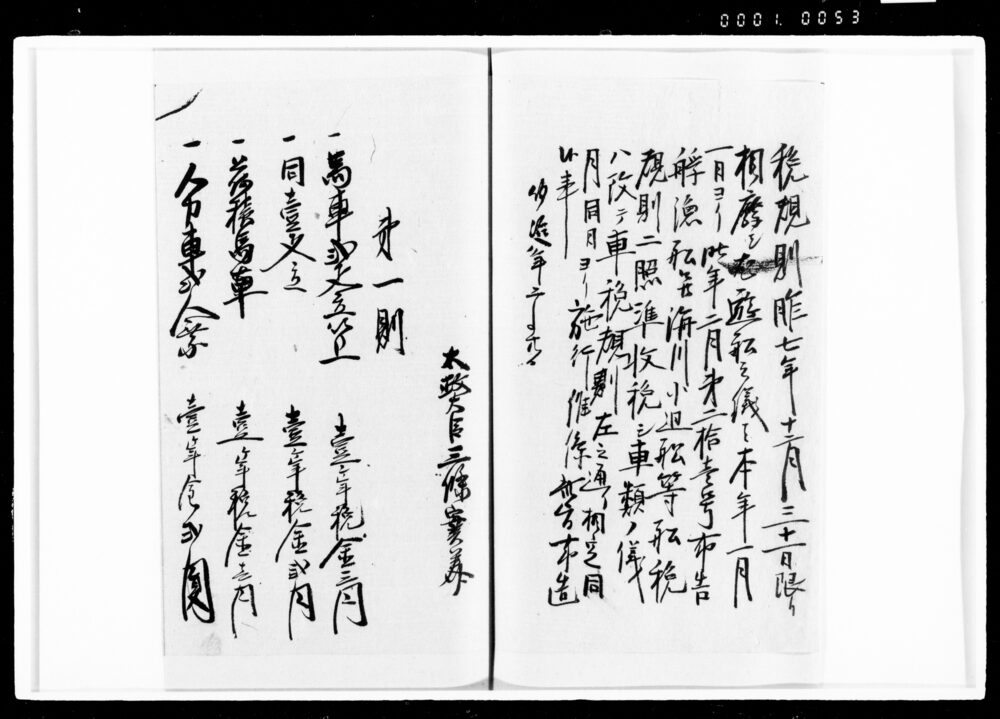 0001 0053
税規則昨七年十二月三十一日限リ
相廃シ遊船之儀ハ本年一月
一月ヨリ昨年二月第二拾壱号布告
艀漁船并海川小廻船等船税
規則ニ照準収税シ車類ノ儀
ハ改テ車税規則左之通リ相定同
月同月ヨリ施行候條此旨布告
候事
太政大臣三條實美
第一則
一馬車弐疋立以上 壹ヶ年税金三円
一同壹疋立 壹ヶ年税金弐円
一荷積馬車 壹ヶ年税金壱円
一人力車弐人乗 壹ヶ年金弐圓